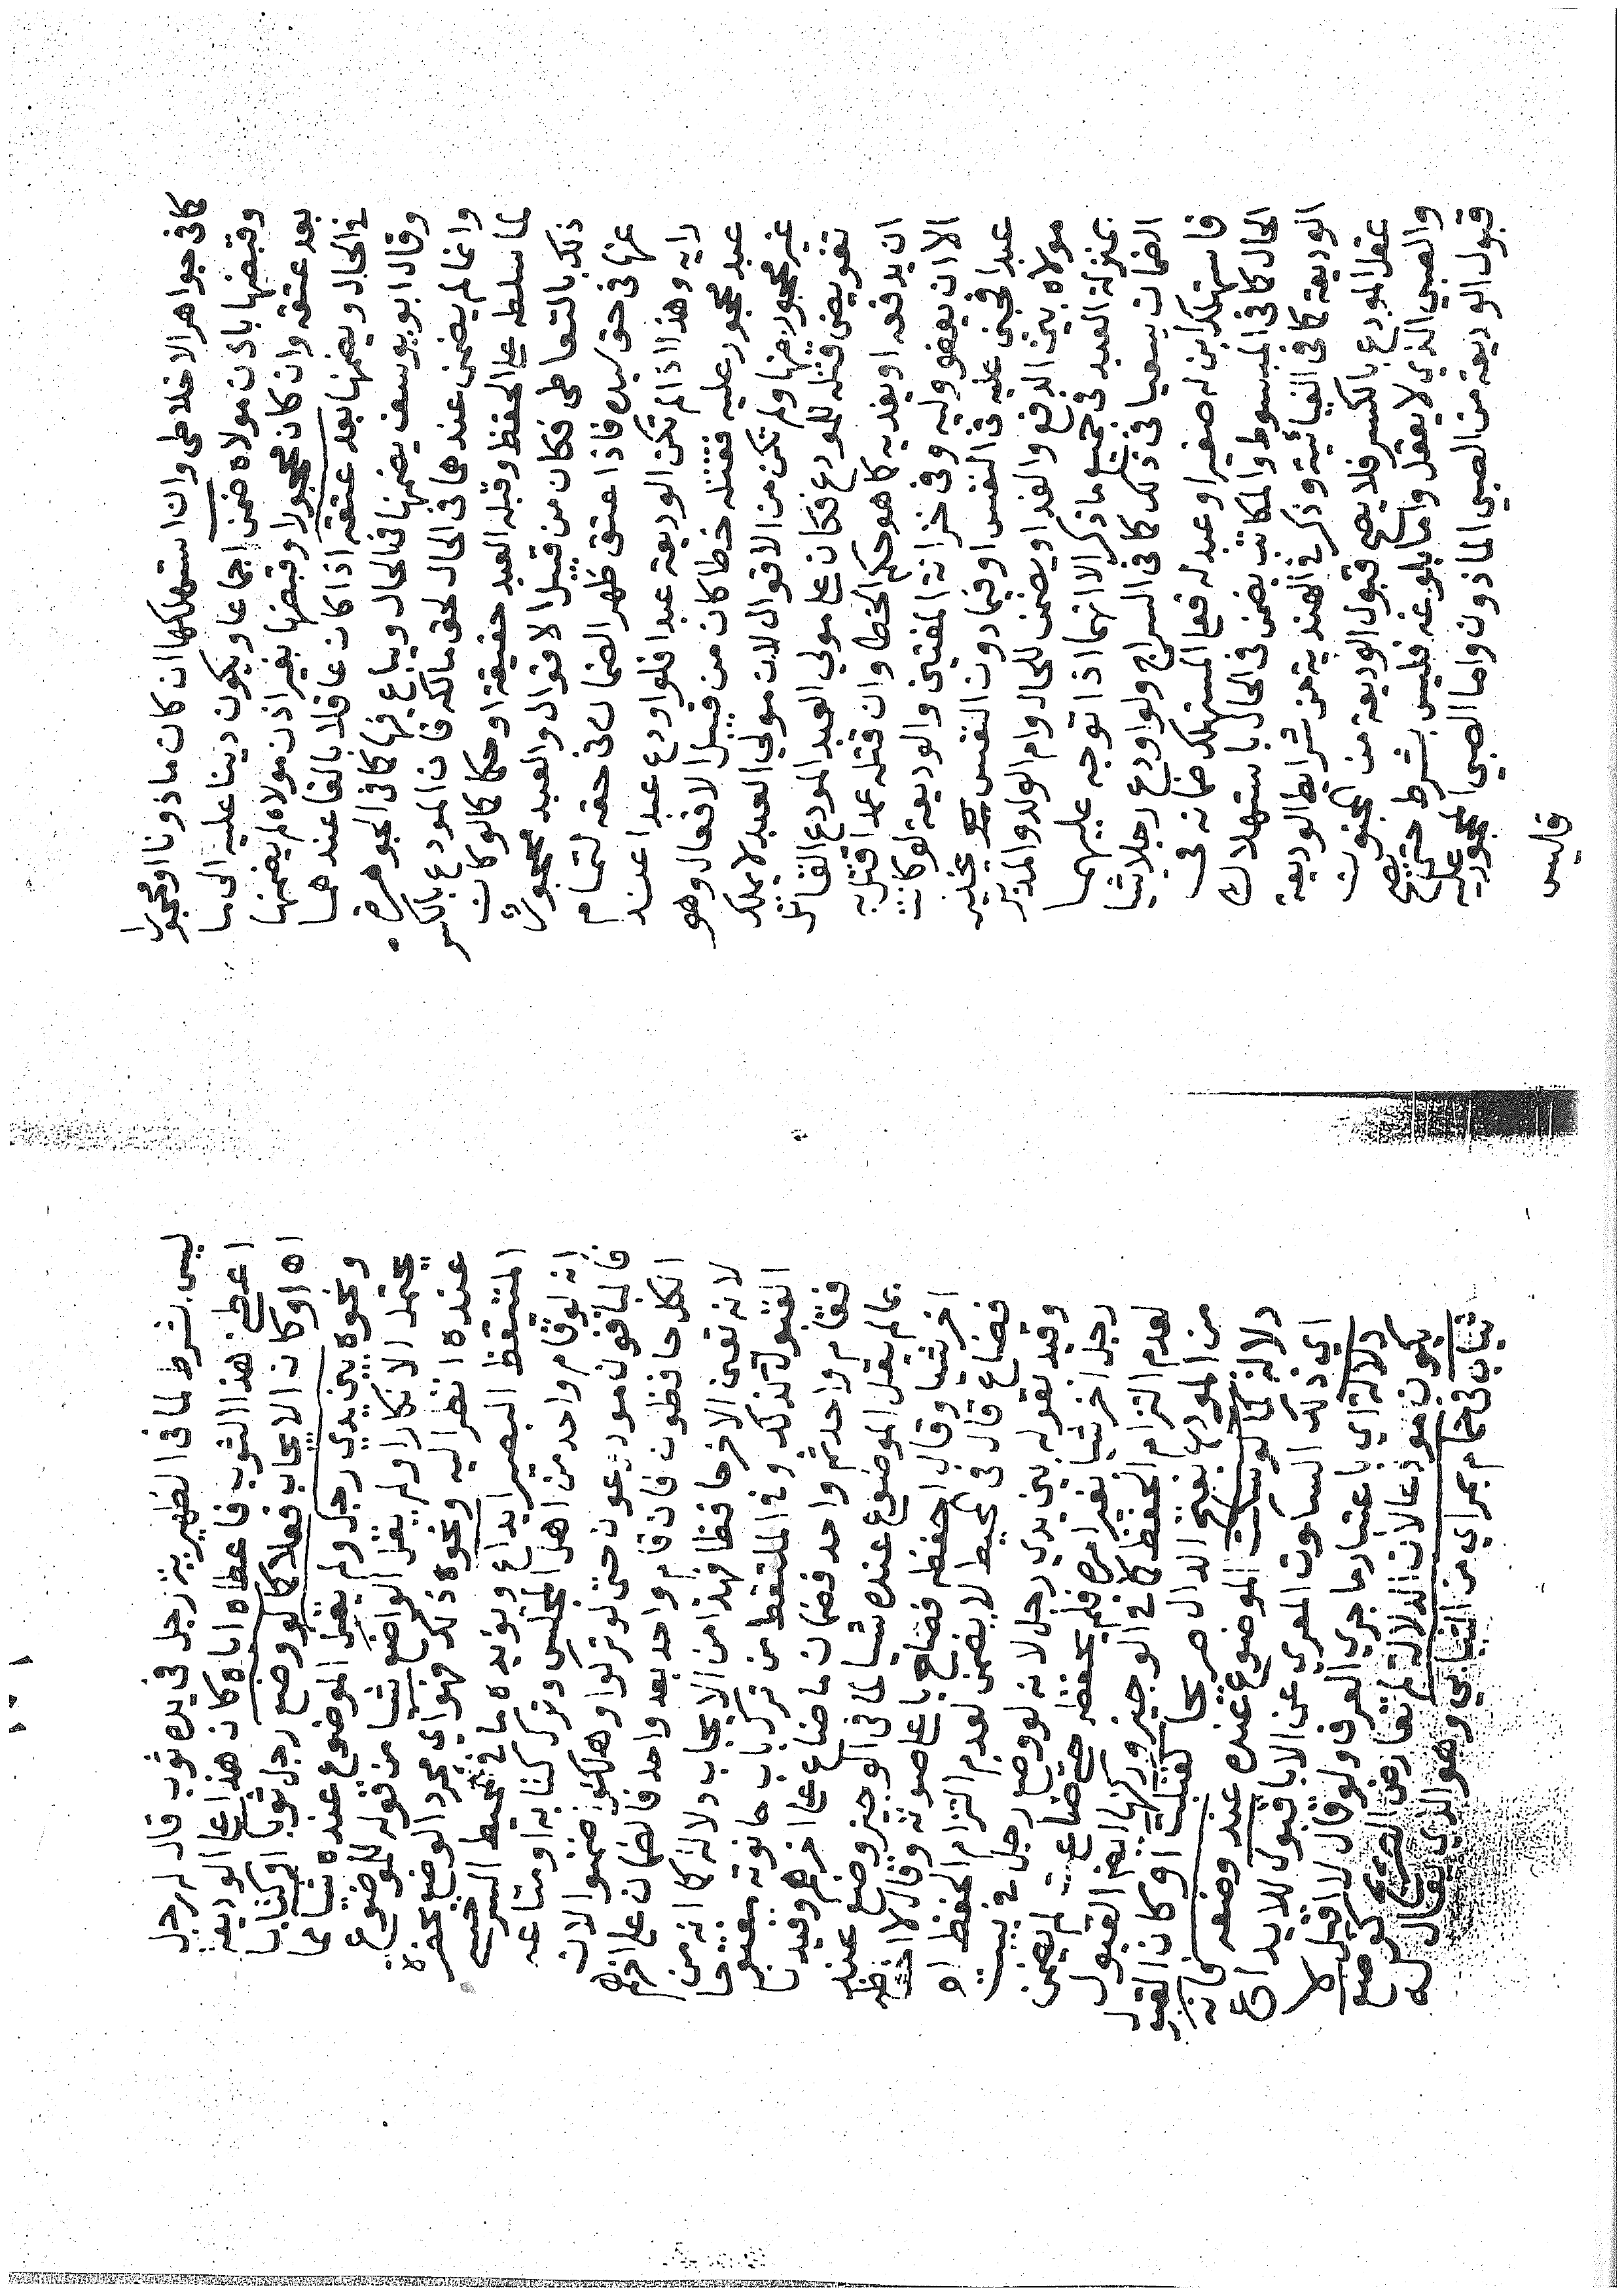 كما في جواهر الاخلاطي وان استهلكها ان كان ماذونا او محجورا
وقبضها باذن مولاه ضمن اجماعا ويكون دينا عليه الى ما
بعد عتقه وان كان محجورا وقبضها بغير اذن مولاه لم يضمنها
في الحال ويضمنها بعد عتقه اذا كان عاقلا بالغا عندهما
وقال ابو يوسف يضمنها في الحال ويباع فيها كما في الجوهره
وانما لم يضمن عندهما في الحال لحق مالكه فان المودع بالكسر
لما سلطه على الحفظ وقبله العبد حقيقة او حكما كما لو كان
ذلك بالتعاطي فكان من قبيل الاقوال والعبد محجور
عنها في حق سيده فاذا عتق ظهر الضمان في حقه لتمام
رايه وهذا اذا لم تكن الوديعة عبدا فلو اودع عبدا عند
عبد محجور عليه فقتله خطا كان من قبيل الافعال وهو
غير محجور منها ولم تكن من الاقوال لان مولى العبد لا يملك
تفويض قتله للمودع فكان على مولى العبد المودع القاتل
ان يدفعه او يفديه كما هو حكم الخطا وان قتله عمدا قتل به
الا ان يعفو وليه وفي خزانة المفتين والوديعة لو كانت
عبدا فجنى عليه في النفس او فيما دون النفس يخير
مولاه بين الدفع والفدا ويضمن للحال وام الولد والمدبر
بمنزلة العبد في جميع ما ذكر الا انهما اذا توجه عليهما
الضمان يسعيا في ذلك كما في السراج ولو اودع رجلا شيا
فاستهلك ابن له صغير او عبد له فعلى المستهلك ضمانه في
الحال كما في المبسوط والمكاتب يضمن في الحال باستهلاك
الوديعة كما في الغياثية وذكر في الهندية من شرائط الوديعة
عقل المودع بالكسر فلا يصح قبول الوديعة من المجنون
والصبي الذي لا يعقل واما بلوغه فليس بشرط حتى يصح
قبول الوديعة من الصبي الماذون واما الصبي المحجور عليه
فليس
ليس بشرط لما في الظهيرية رجل في يده ثوب قال له رجل
اعطني هذا الثوب فاعطاه اياه كان هذا على الوديعة
اه او كان الايجاب فعلا كما لو وضع رجل ثوبا او كتابا
ونحوه بين يدي رجل ولم يقل الموضوع عنده شيا مما
يحتمل الانكار او لم يقل الواضع شيا من قوله للموضوع
عنده انظر اليه ونحوه ذلك فهو اي مجرد الوضع بحضرة
المتيقظ البصير ايداع ويؤيده ما في محيط السرخسي
انه لو قام واحد من اهل المجلس وترك كتابه او متاعه
فالباقون مودعون حتى لو تركوا وهلك ضمنوا لان
الكل حافظون فان قام واحد بعد واحد فالضمان على اخرهم
لانه تعين الاخر حافظا فهذا من الايجاب دلالة كما انه من
القبول كذلك وفي الملتقط من ترك باب حانوته مفتوحا
فقام واحد ثم واحد فضمان ما ضاع على اخرهم وقيدنا
بما لم يقل الموضوع عنده شيا لما في الوجيز وضع عند
اخر شيا وقال احفظه فضاع باعلا صوته وقال لا احفظه
فضاع قال في المحيط لا يضمن لعدم التزام الحفظ اه
وقيد بقوله بين يدي رجل لانه لو وضع رجل في بيت
رجل اخر شيا بغير امره فلم يحفظه حتى ضاع لم يضمن
لعدم التزام الحفظ كما في الوجيز وركنها ايضا القبول
من المودع بفتح الدال صريحا كقبلت او كان القبول
دلالة كما لو سكت الموضوع عنده عند وضعه فانه
اي ذلك السكوت المعري عن الابا قبول للايداع
دلالة اي باعتبار ما جرى العرف ولو قال لا اقبل لا
يكون مودعا لان الدلالة لم تعارض الصريح كوضع
ثيابه في حمام بمراي من الثيابي وهو الذي يقال له